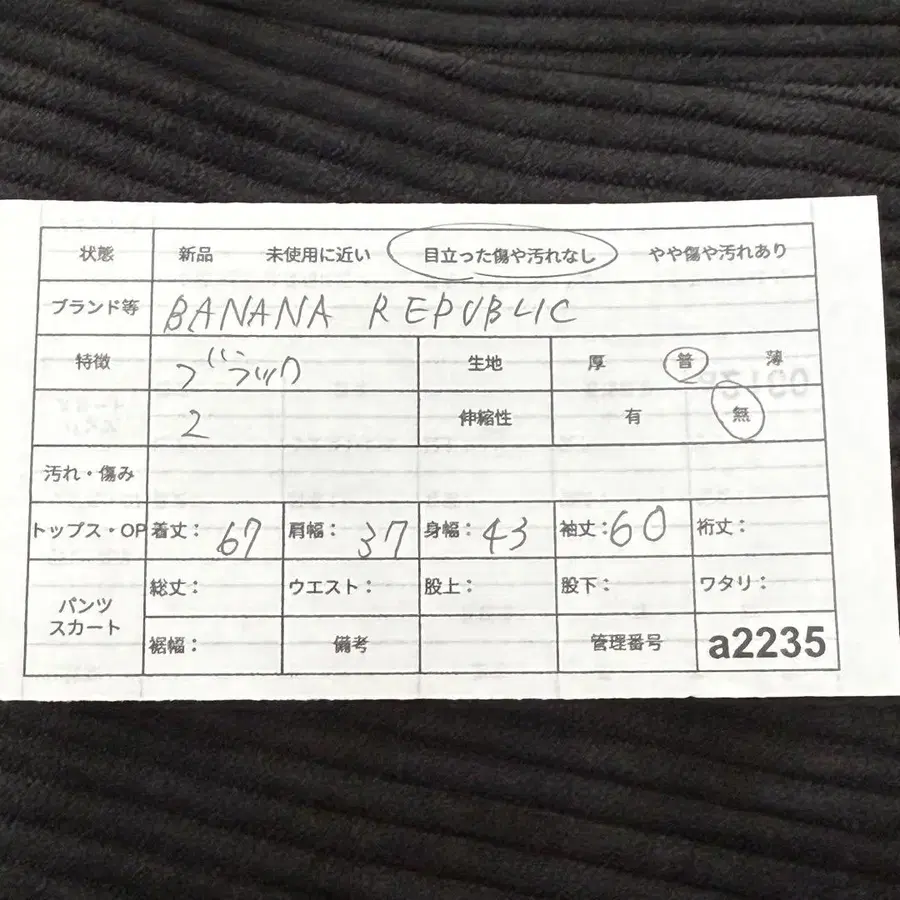 状態 新品 未使用に近い 目立った傷や汚れなし やや傷や汚れあり
ブランド等 BANANA REPUBLIC
特徴 ブラック 生地 厚 普 薄
2 伸縮性 有 無
汚れ・傷み
トップス・OP 着丈: 67 肩幅: 37 身幅: 43 袖丈: 60 裄丈:
パンツ スカート 総丈: ウエスト: 股上: 股下: ワタリ:
裾幅: 備考 管理番号 a2235